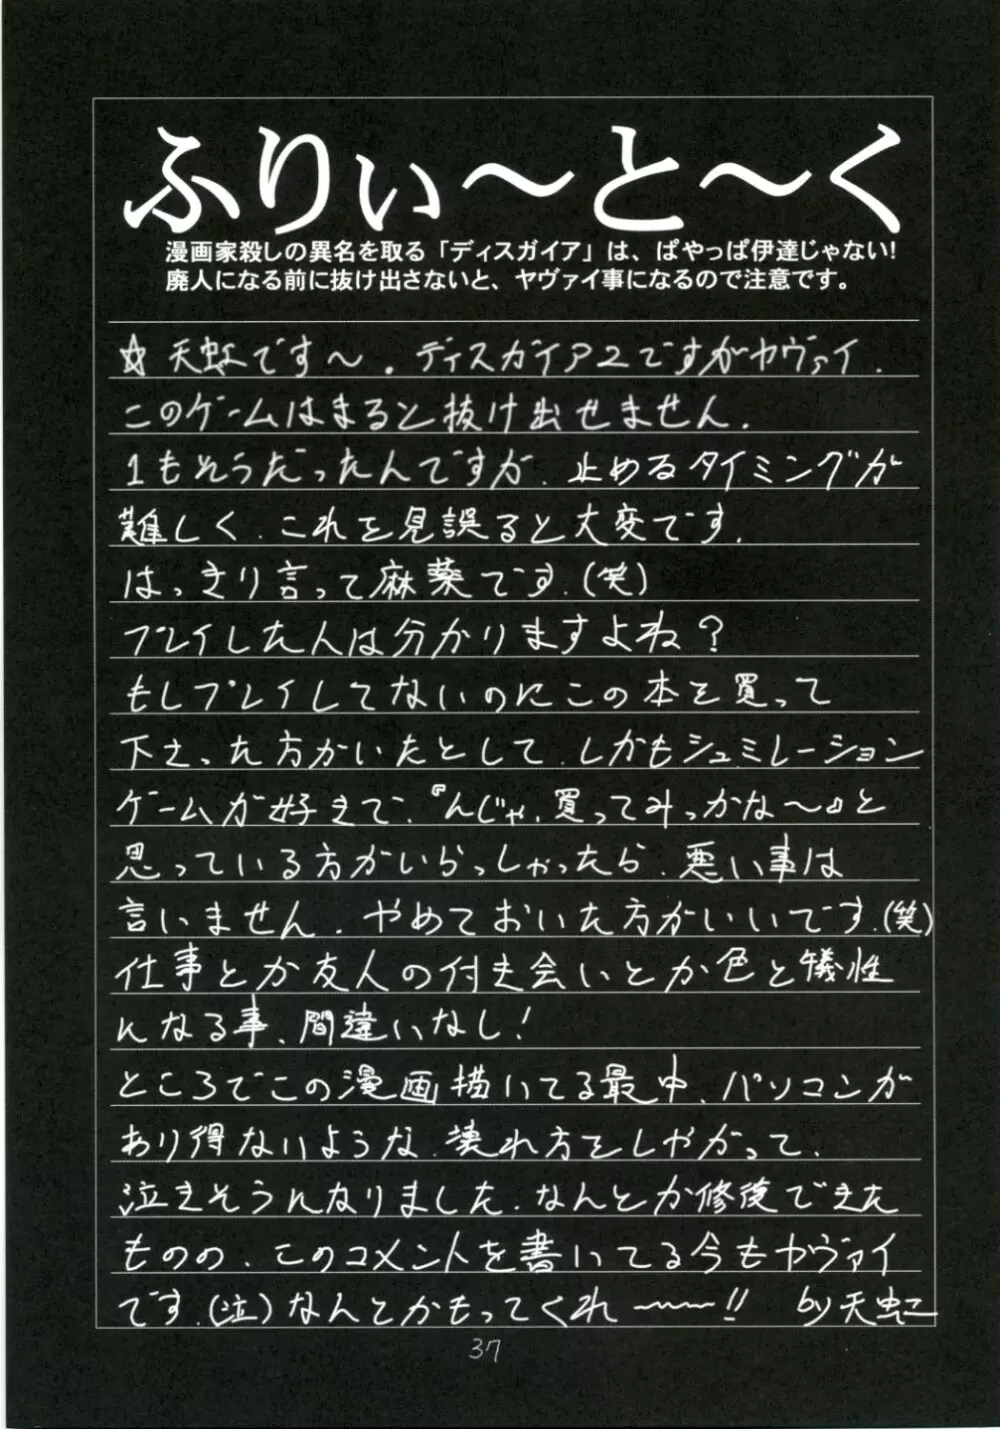 ふりぃ～と～く
漫画家殺しの異名を取る「ディスガイア」は、ぱやっぱ伊達じゃない!
廃人になる前に抜け出さないと、ヤヴァイ事になるので注意です。
☆天虹です～。ディスガイア2ですがヤヴァイ.
このゲームはまると抜け出せません.
1もそうだったんですが、止めるタイミングが
難しく、これを見誤ると大変です.
はっきり言って麻薬です.(笑)
プレイした人は分かりますよね?
もしプレイしてないのにこの本を買って
下さった方がいたとして、しかもシュミレーション
ゲームが好きで、『んじゃ、買ってみっかな～』と
思っている方がいらっしゃったら、悪い事は
言いません、やめておいた方がいいです.(笑)
仕事とか友人の付き会いとか色と犠牲
になる事、間違いなし!
ところでこの漫画描いてる最中、パソコンが
あり得ないような、壊れ方をしやがって、
泣きそうになりました、なんとか修復できた
ものの、このコメントを書いてる今もヤヴァイ
です.(泣)なんとかもってくれ～～!! by天虹
37